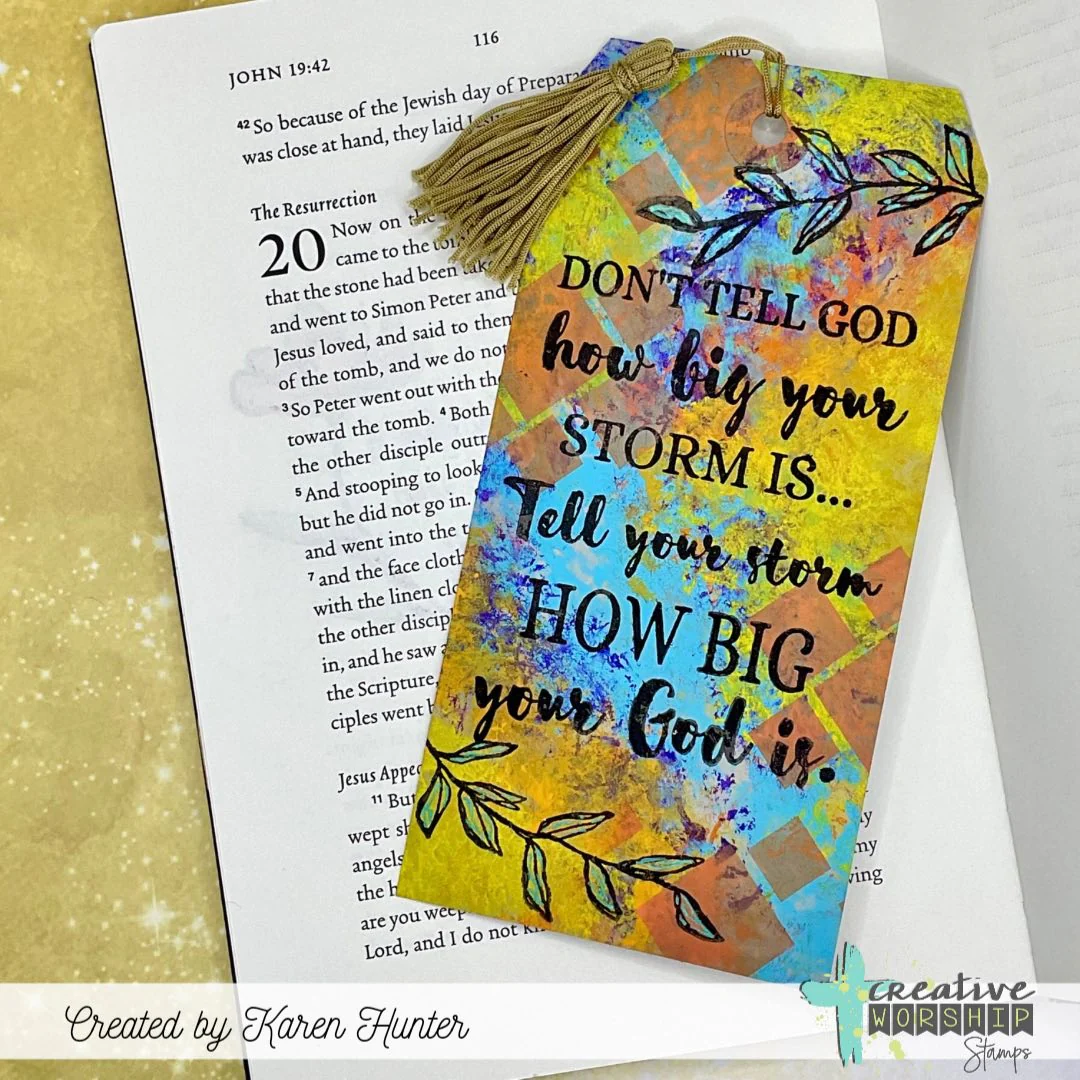 116
JOHN 19:42
42 So because of the Jewish day of
was close at hand, they laid
The Resurrection
20 Now on
came to the
that the stone had been
and went to Simon Peter and
Jesus loved, and said to them
of the tomb, and we do not
3 So Peter went out with the
toward the tomb. 4 Both
the other disciple
5 And stooping to look
but he did not go in.
and went into the
7 and the face
with the linen
the other
in, and he saw
the Scripture,
ciples went
Jesus
11
wept
angels
the
are you
Lord, and I do not
my
DON'T TELL GOD
how big your
STORM IS...
Tell your storm
HOW BIG
your God is.
Created by Karen Hunter
creative
WORSHIP
Stamps